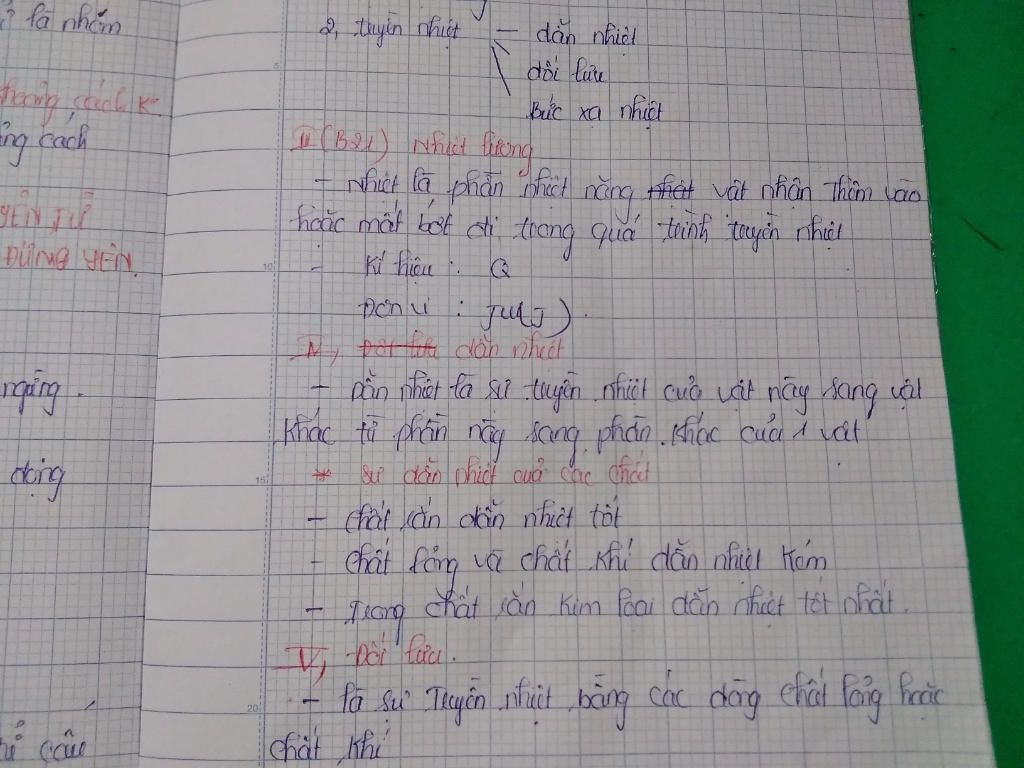 là nhóm
khoảng cách K
ng cách
YÊN TỬ
ĐỨNG YÊN.
ngang.
động
câu
2, truyền nhiệt — dẫn nhiệt
đối lưu
Bức xạ nhiệt
(B21) Nhiệt lượng
- Nhiệt là phần nhiệt năng nhiệt vật nhận thêm vào
hoặc mất bớt đi trong quá trình truyền nhiệt
- Kí hiệu : Q
Đơn vị : Ju(J).
IV, Đối lưu dẫn nhiệt
- Dẫn nhiệt là sự truyền nhiệt của vật này sang vật
khác từ phần này sang phần khác của 1 vật
* sự dẫn nhiệt của các chất
- chất rắn dẫn nhiệt tốt
- chất lỏng và chất khí dẫn nhiệt kém
- Trong chất rắn kim loại dẫn nhiệt tốt nhất.
V, Đối lưu.
- là sự Truyền nhiệt bằng các dòng chất lỏng hoặc
chất khí